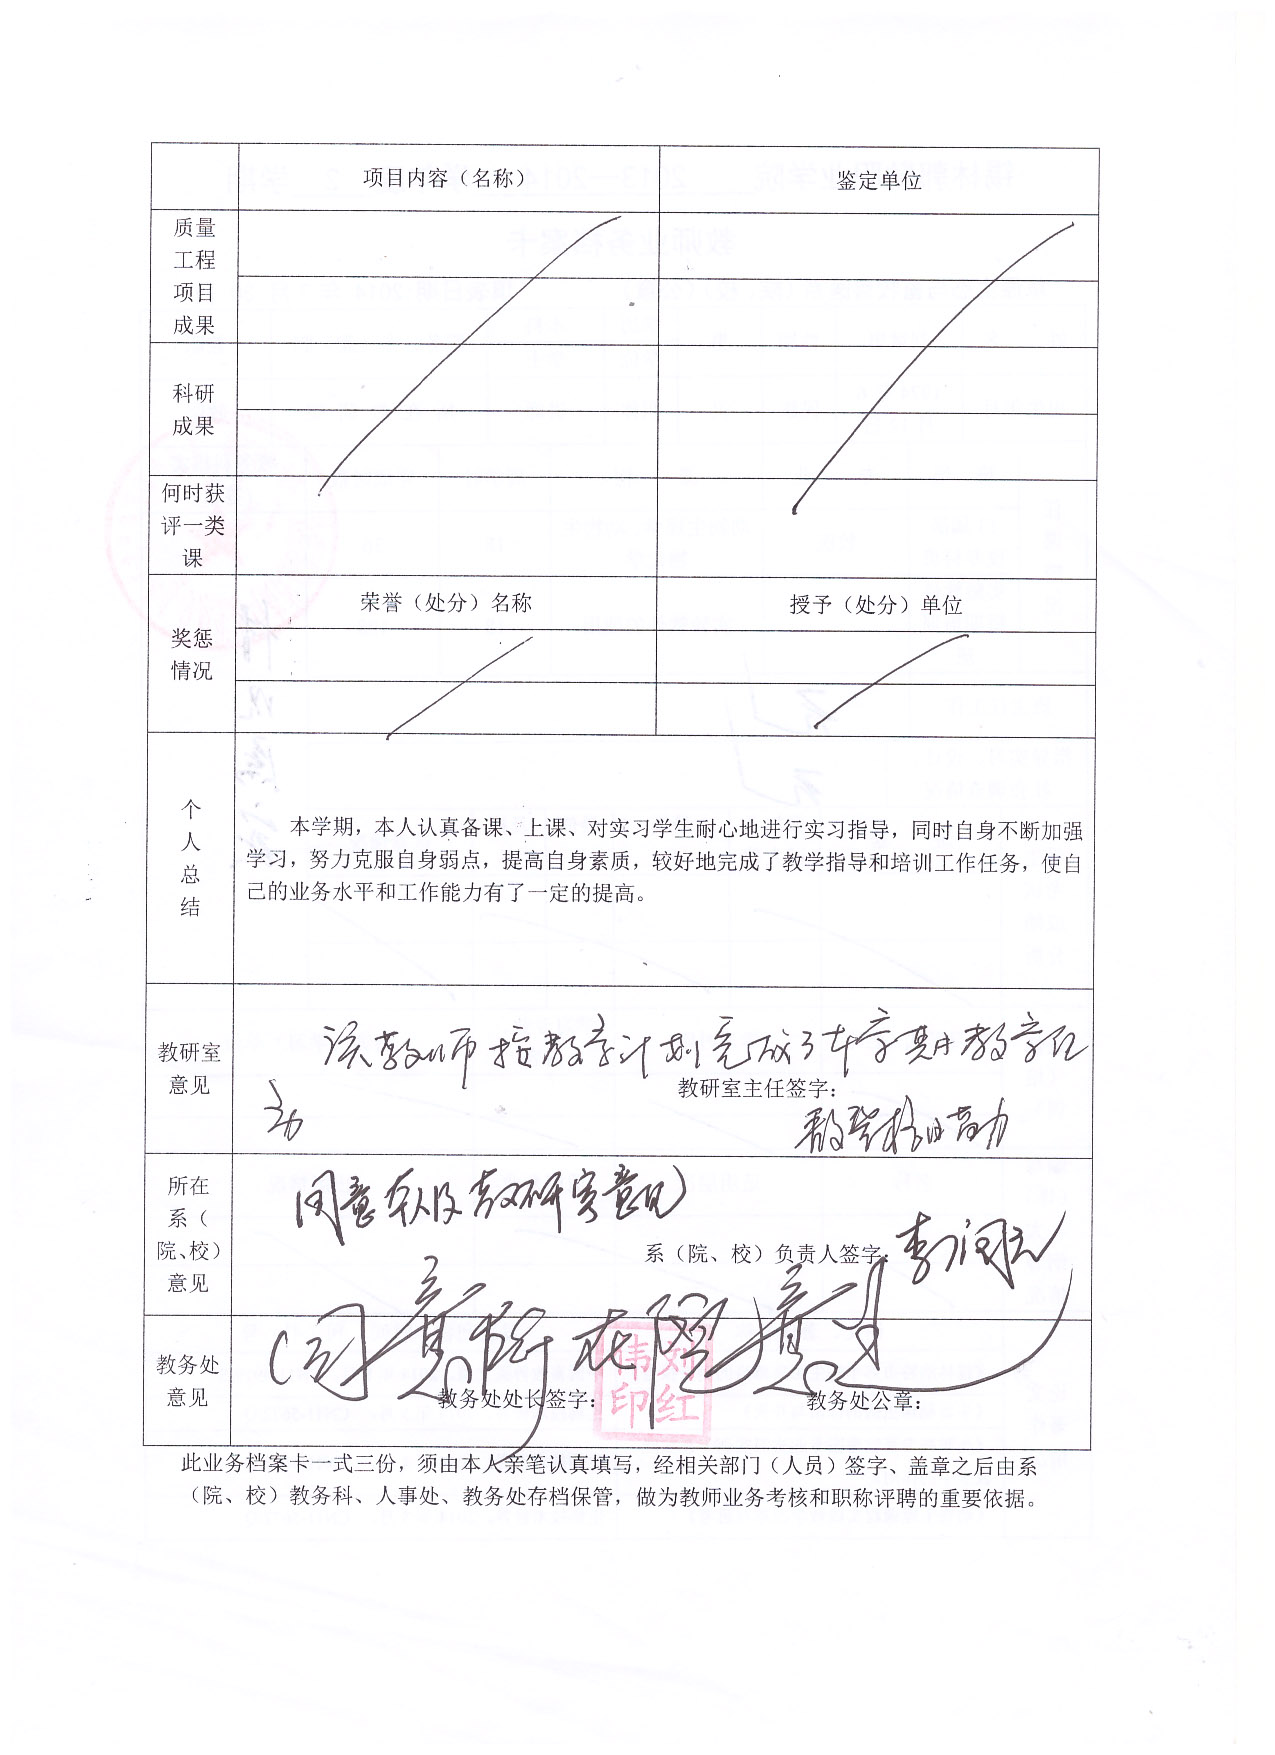 项目内容（名称） 鉴定单位
质量
工程
项目
成果
科研
成果
何时获
评一类
课
荣誉（处分）名称 授予（处分）单位
奖惩
情况
个
人
总
结
本学期，本人认真备课、上课、对实习学生耐心地进行实习指导，同时自身不断加强
学习，努力克服自身弱点，提高自身素质，较好地完成了教学指导和培训工作任务，使自
己的业务水平和工作能力有了一定的提高。
教研室
意见
该教师按教学计划完成了本学期教学任
务
教研室主任签字：
所在
系（
院、校）
意见
同意 教研室意见
系（院、校）负责人签字：李润元
教务处
意见
同意
教务处处长签字：
教务处公章：
刘红
伟印
此业务档案卡一式三份，须由本人亲笔认真填写，经相关部门（人员）签字、盖章之后由系
（院、校）教务科、人事处、教务处存档保管，做为教师业务考核和职称评聘的重要依据。